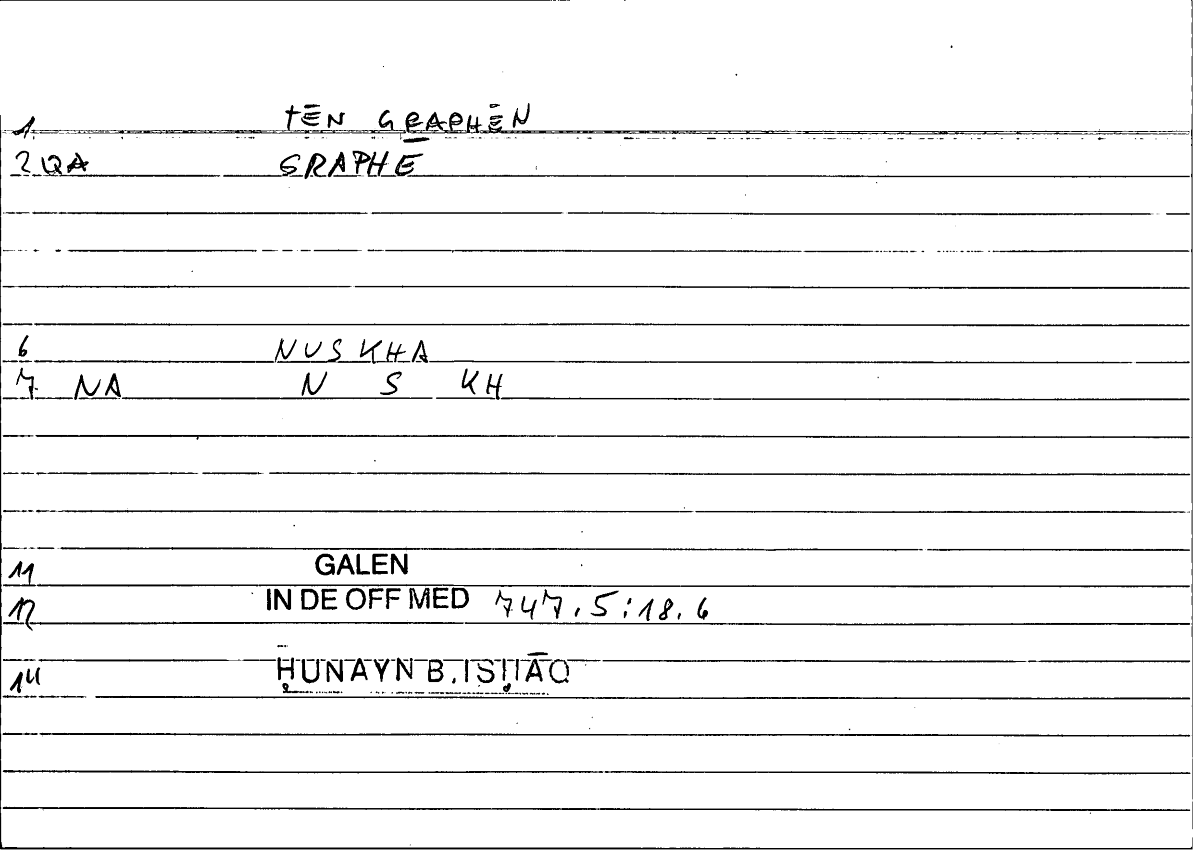 1 TĒN GRAPHĒN
2 QA GRAPHĒ
6 NUSKHA
7 NA N S KH
11 GALEN
12 IN DE OFF MED 747.5:18.6
14 ḤUNAYN B. ISḤĀQ